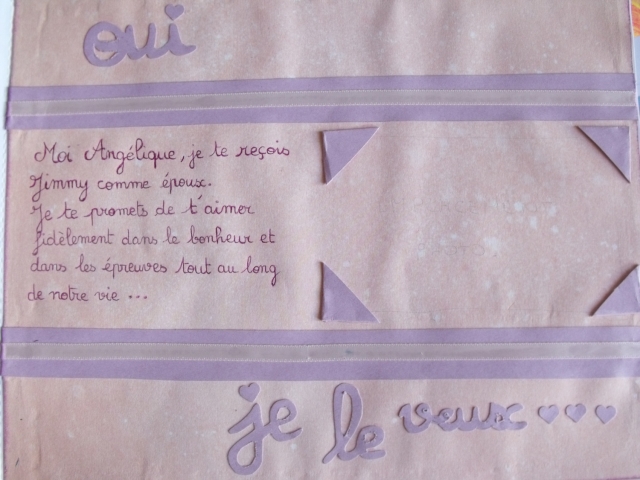 oui
Moi Angélique, je te reçois
Jimmy comme époux.
Je te promets de t'aimer
fidèlement dans le bonheur et
dans les épreuves tout au long
de notre vie ...
je le veux